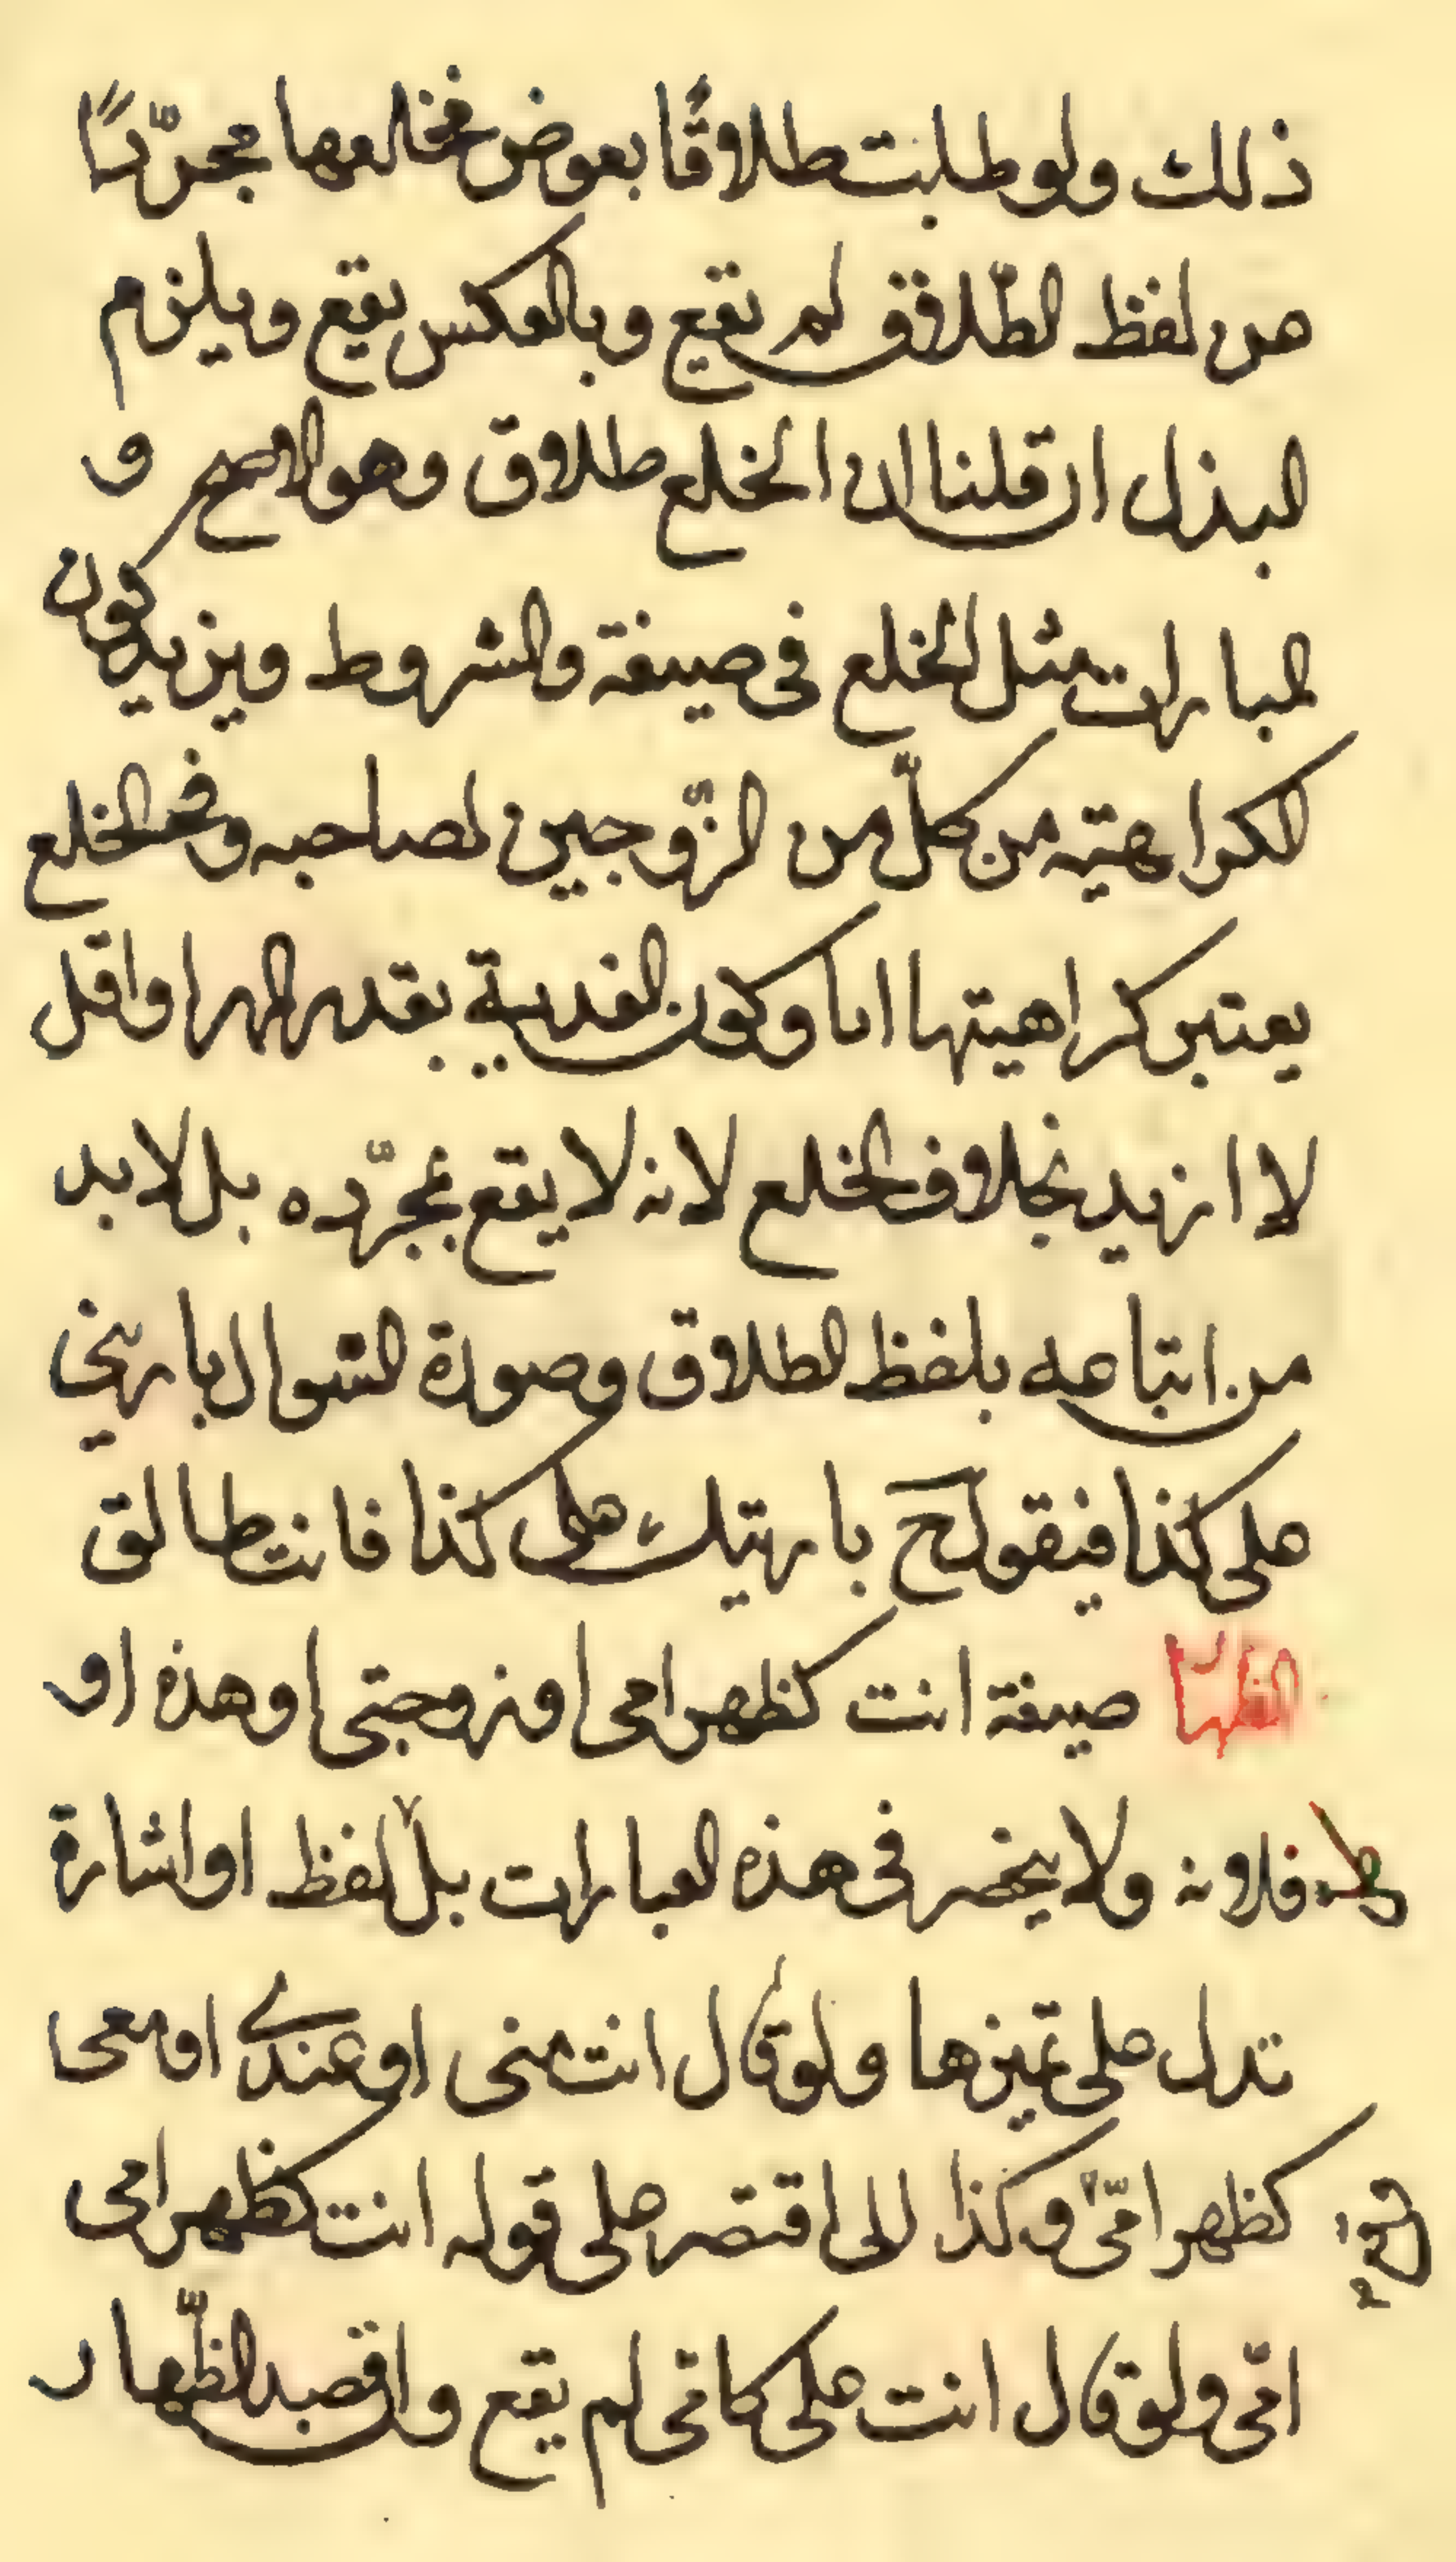 ذلك ولو طلبت طلاقًا بعوض فخالعها مجرّدًا
من لفظ الطّلاق لم يقع وبالعكس يقع ويلزم
البذل ان قلنا ان الخلع طلاق وهو الاصح و
المبارات مثل الخلع في صيغة والشروط ويزيد كون
الكراهيته من كلّ من الزّوجين لصاحبه وفي الخلع
يعتبر كراهيتها اما وكون الفدية بقدر المهر او اقل
لا ازيد بخلاف الخلع لانه لا يقع بمجرّده بل لا بد
من اتباعه بلفظ الطلاق وصورة السؤال بارئني
على كذا فيقول ح بارتيك على كذا فانت طالق
الظهار صيغة انت كظهر امي او زوجتي او هذه او
فلانة ولا ينحصر في هذه العبارات بل لفظ او اشارة
تدل على تميزها ولو قال انت مني او عندي او معي
كظهر امّي وكذا اقتصر على قوله انت كظهر امي
امّي ولو قال انت علي كامّي لم يقع وان قصد الظّهار